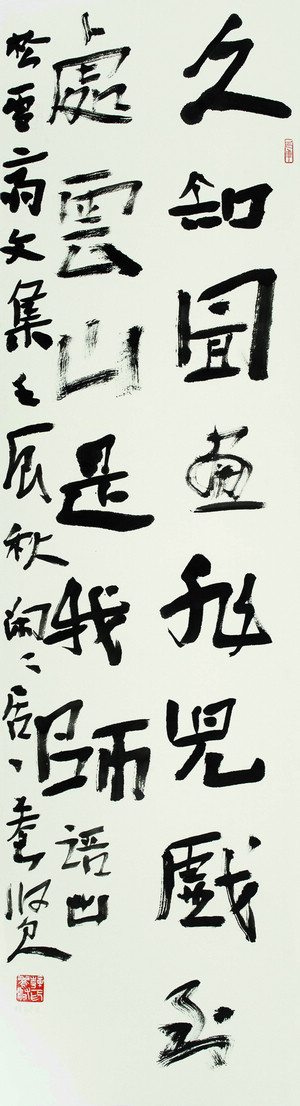 久知圖畫非兒戲到
處雲山是我師語出
松雪齋文集壬辰秋